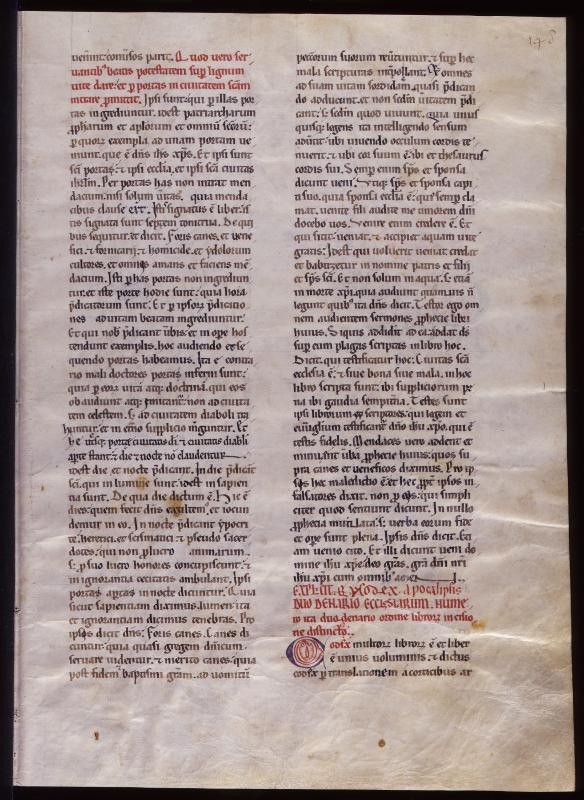 178
uenerint comissos parit. Quod uero ser
uantib; beatis potestatem sup lignum
uite dare et p portas in ciuitatem sc̄am
intrare pmittit. Ipsi sunt qui p illas por
tas ingrediuntur. idest patriarcharum
pphetarum et apl̄orum et omnium sc̄orum.
p quorum exempla ad unam portam ue
niunt. que ē dn̄s ih̄s xp̄s. Et ipsi sunt
sc̄i portas. ⁊ ipsi ecclīa. et ipsi sc̄i ciuitas
ihrl̄m. Per portas has non intrat men
dacium. nisi solum ueritas. quia menda
cibus clause
tis signata sunt septem tonitrua. De qui
bus sequitur et dicit. Foris canes. et uene
fici. ⁊ fornicarij. ⁊ homicide. et ydolorum
cultores. et omnis amans et faciens mē
dacium. Isti p has portas non ingrediun
tur. et iste porte hodie sunt. quia hora
pdicatorum sunt. Et p ipsorum pdicatio
nes ad uitam beatam ingrediuntur.
Et qui nob pdicant uerbis. et in ope hos
tendunt exemplis. hoc audiendo et se
quendo portas habeamus. Ita e contra
rio mali doctores portas inferni sunt.
quia p eorum uita atq; doctrina. qui eos
obaudiunt. atq; imitantur. non ad ciuita
tem celestem. s; ad ciuitatem diaboli ita
huntur. et in et̄no supplicio mguntur. Et
he utreq; porte ciuitatis dī. ⁊ ciuitatis diabli
apte stant. ⁊ die ⁊ nocte nō claudentur
idest die et nocte pdicant. In die pdicāt
sc̄i. qui in lumine sunt. idest in sapien
tia sunt. De qua die dictum ē. Hic ē
dies quem fecit dn̄s exultemꝰ. et iocun
demur in eo. In nocte pdicant ypocri
te. heretici. et scismatici. ⁊ pseudo sacer
dotes. qui non p lucro animarum.
s; p suo lucro honores concupiscunt. ⁊
in ignorantia cecitatis ambulant. Ipsi
portas aptas in nocte dicuntur. Quia
sicut sapientiam diximus lumen. ita
et ignorantiam dicimus tenebras. Pro
ipsos dicit dn̄s. Foris canes. Canes di
cuntur. quia quasi gregem dn̄icum.
seruare uidentur. ⁊ merito canes. quia
post fidem baptismi grām. ad uomitū
peccorum suorum reuertuntur. ⁊ sup hec
mala scripturas interpolant. Et omnes
ad suam uitam sordidam. quasi pdican
do adducunt. et non sc̄dm ueritatem pdi
cant. s; sc̄dm quod uiuunt. quia unus
quisq; legens ita intelligendo sensum
aduertit. ubi uiuendo occulum cordis te
nuerit. ⁊ ubi cor suum ē ibi et thesaurus
cordis sui. Semp enim sp̄s et sponsa
dicunt ueni. Utiq; sp̄s et sponsa capi
ti suo. quia sponsa ecclīa ē. que semp cla
mat. uenite filii audite me timorem dn̄i
docebo uos. Venire enim credere ē. Et
qui sitit ueniat. ⁊ accipiet aquam uite
gratis. Idest qui uoluerit ueniat credat
et babtizetur in nomine patris et filii
et sp̄s sc̄i. Et non solum in aqua. s; etiā
in morte xp̄i. quia audiunt quamuis nō
legunt quib; ita dn̄s dicit. Testor ego om
nem audientem sermones pphecie libri
huius. Si quis addidit ad ea. addat ds̄
sup eum plagas scriptas in libro hoc.
Dicit. qui testificatur hoc. Ciuitas sc̄a
ecclesia ē. ⁊ siue bona siue mala. in hoc
libro scripta sunt. ibi suppliciorum pe
na ibi gaudia sempitna. Testes sunt
ipsi librorum scriptores. qui legem et
euuāglium testificant dn̄o ih̄u xp̄o. qui ē
testis fidelis. Mendaces uero addent et
minuunt uba pphecie huius. quos su
pra canes et ueneficos diximus. Pro ip
sos hec maledictio ē. et hec ppt ipsos in
falsatores dixit. non p eos. qui simpli
citer quod sentiunt dicunt. In nullo
pphecia mutilata. s; uerba eorum fide
et ope sunt plena. Ipsis dn̄s dicit. Eti
am uenio cito. Et illi dicunt ueni do
mine ih̄u xp̄e. deo grās. grā dn̄i nr̄i
ih̄u xp̄i cum omnib; amen.
EXPLICIT. CODEX. Apocalipsis
DUO DENARIO ECCLESIARUM. NUME
ro ita duo denario ordine librorum incisio
ne distinctus.
Codex multorum librorum ē et liber
ē unius uoluminis. ⁊ dictus
codex p translationem a corticibus ar